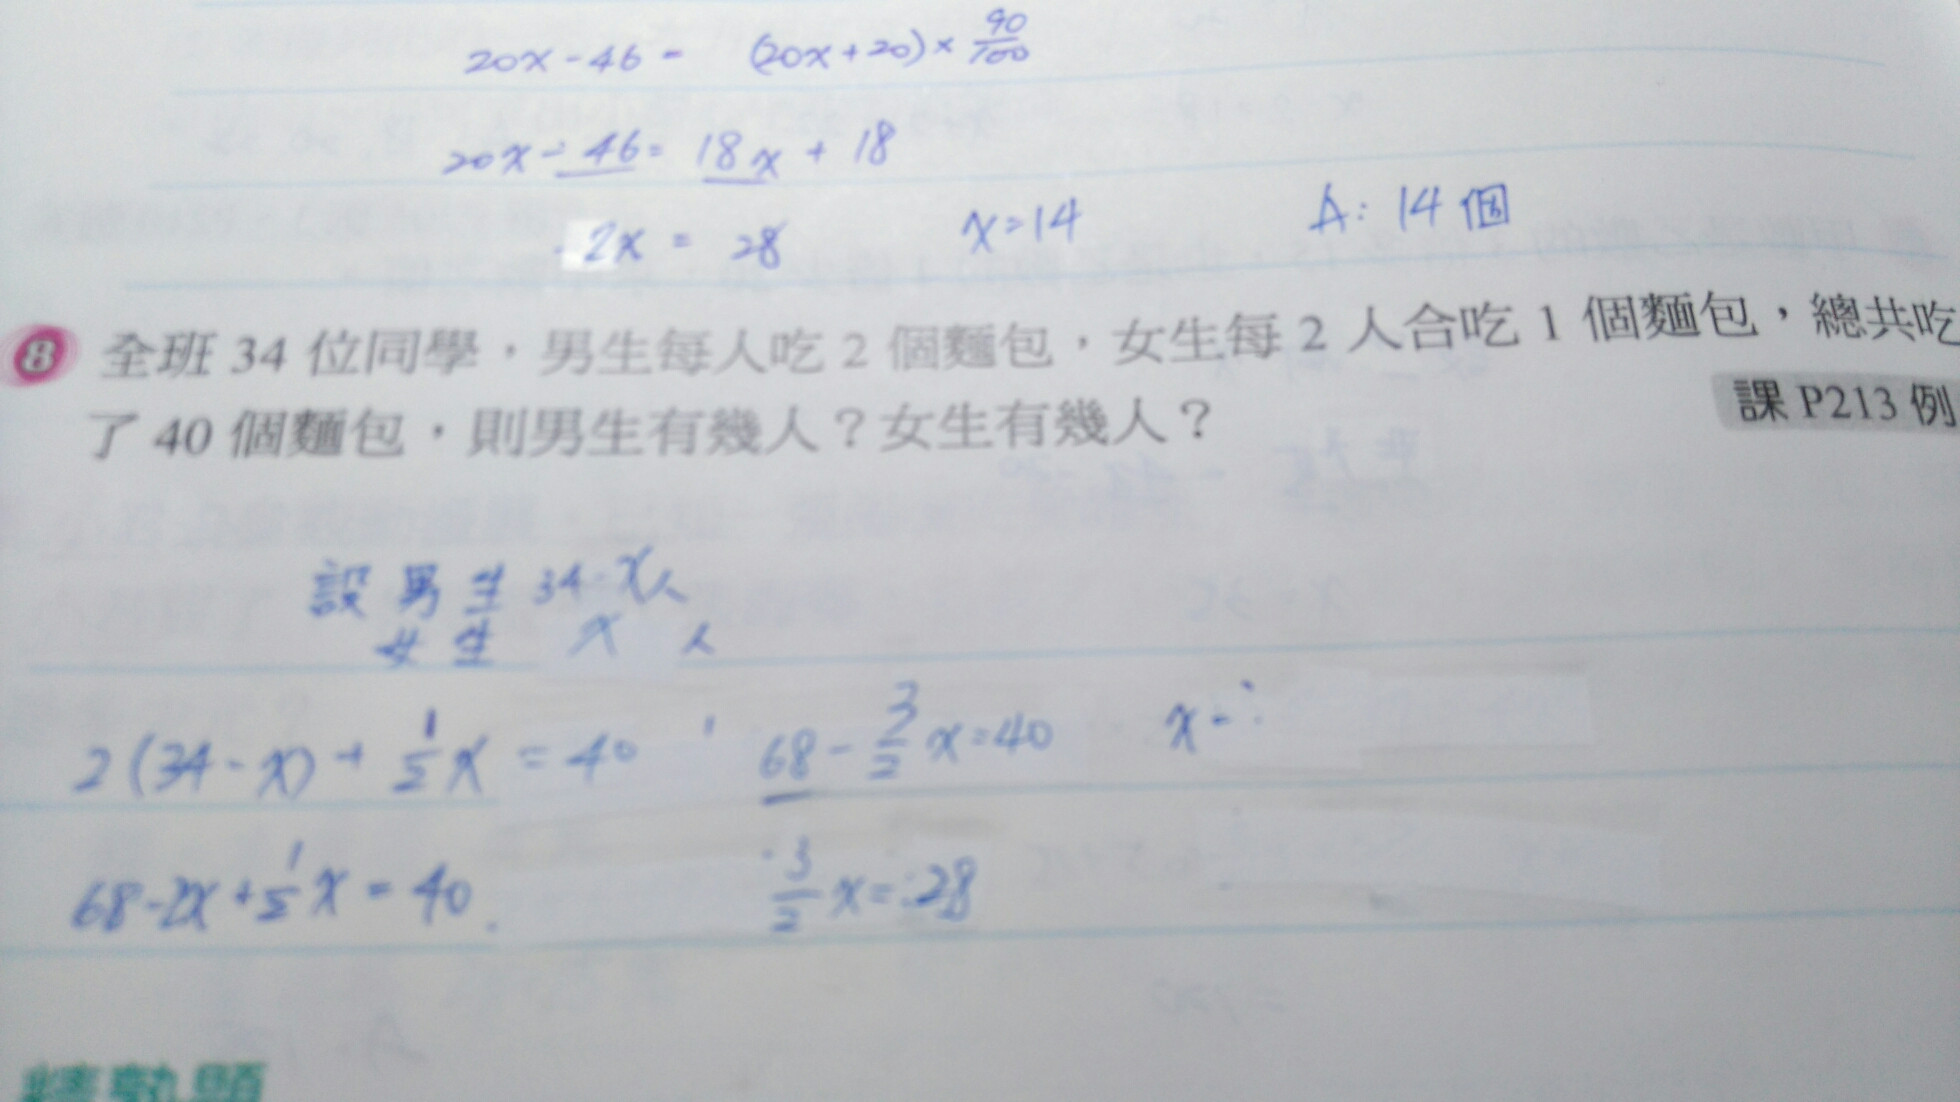 20x-46= (20x+20)×90/100
20x-46=18x+18
2x=28 x=14 A:14個
8 全班 34 位同學，男生每人吃 2 個麵包，女生每 2 人合吃 1 個麵包，總共吃
了 40 個麵包，則男生有幾人？女生有幾人？ 課 P213 例
設男生 34-x人
女生 x 人
2(34-x)+1/2x=40 68-3/2x=40 x=
68-2x+1/2x=40 3/2x=28
精熟題